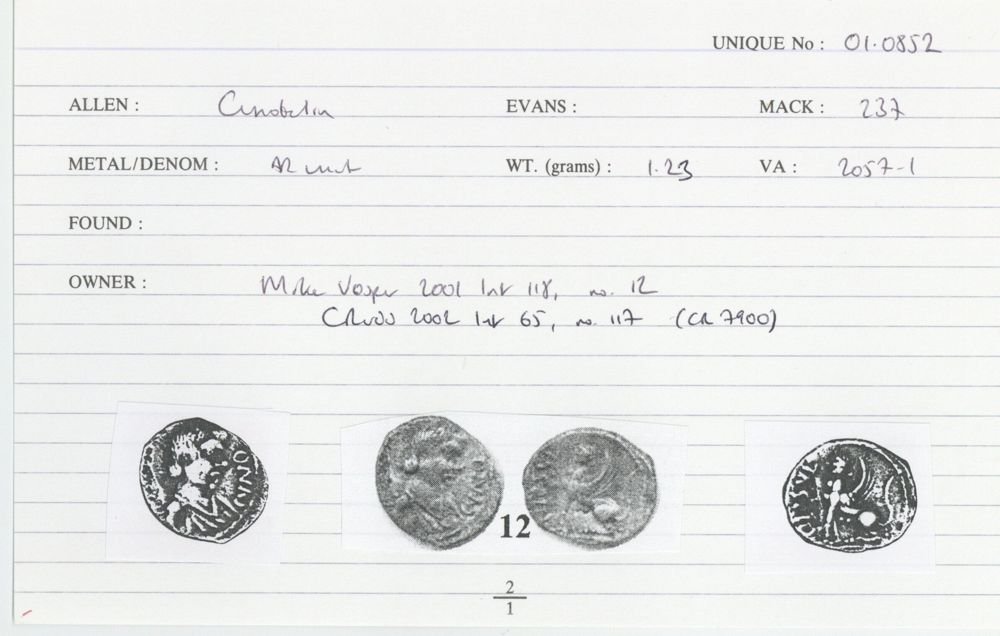 UNIQUE No : 01.0852
ALLEN : Cunobelin EVANS : MACK : 237
METAL/DENOM : AR unit WT. (grams) : 1.23 VA : 2057-1
FOUND :
OWNER : Mike Vosper 2001 list 118, no. 12
2002 list 65, no. 117 (CR 7900)
12
2
1